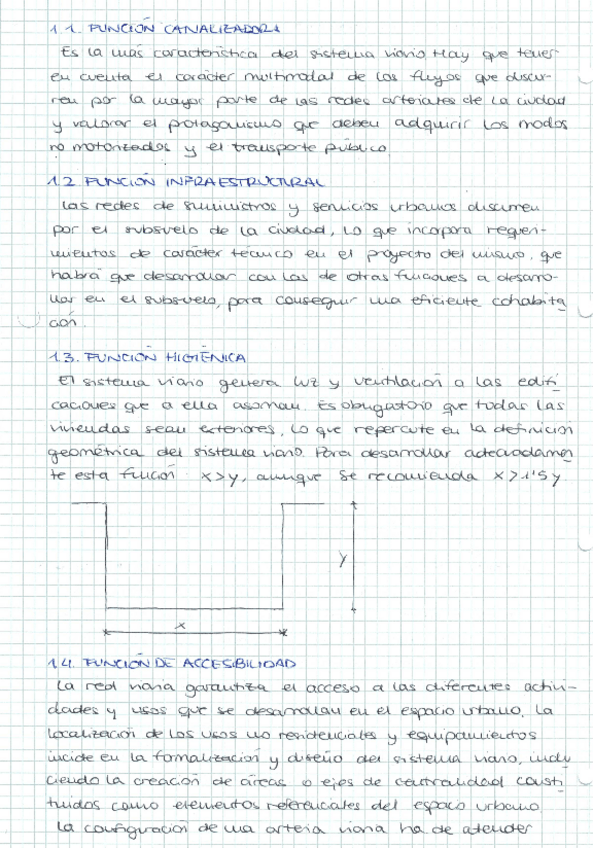 1.1. FUNCIÓN CANALIZADORA
Es la más característica del sistema viario. Hay que tener
en cuenta el carácter multimodal de los flujos que discu-
rren por la mayor parte de las redes arteriales de la ciudad
y valorar el protagonismo que deben adquirir los modos
no motorizados y el transporte público.
1.2 FUNCIÓN INFRAESTRUCTURAL
Las redes de suministros y servicios urbanos discurren
por el subsuelo de la ciudad, lo que incorpora requeri-
mientos de carácter técnico en el proyecto del mismo, que
habrá que desarrollar con las de otras funciones a desarro-
llar en el subsuelo, para conseguir una eficiente cohabita
ción.
1.3. FUNCIÓN HIGIÉNICA
El sistema viario genera luz y ventilación a las edifi
caciones que a ella asoman. Es obligatorio que todas las
viviendas sean exteriores, lo que repercute en la definición
geométrica del sistema viario. Para desarrollar adecuadamen
te esta función x>y, aunque se recomienda x>1'5y
y
x
1.4. FUNCIÓN DE ACCESIBILIDAD
La red viaria garantiza el acceso a las diferentes activi-
dades y usos que se desarrollan en el espacio urbano. La
localización de los usos no residenciales y equipamientos
incide en la formalización y diseño del sistema viario, indu
ciendo la creación de áreas o ejes de centralidad consti
tuidos como elementos referenciales del espacio urbano.
La configuración de una arteria viaria ha de atender